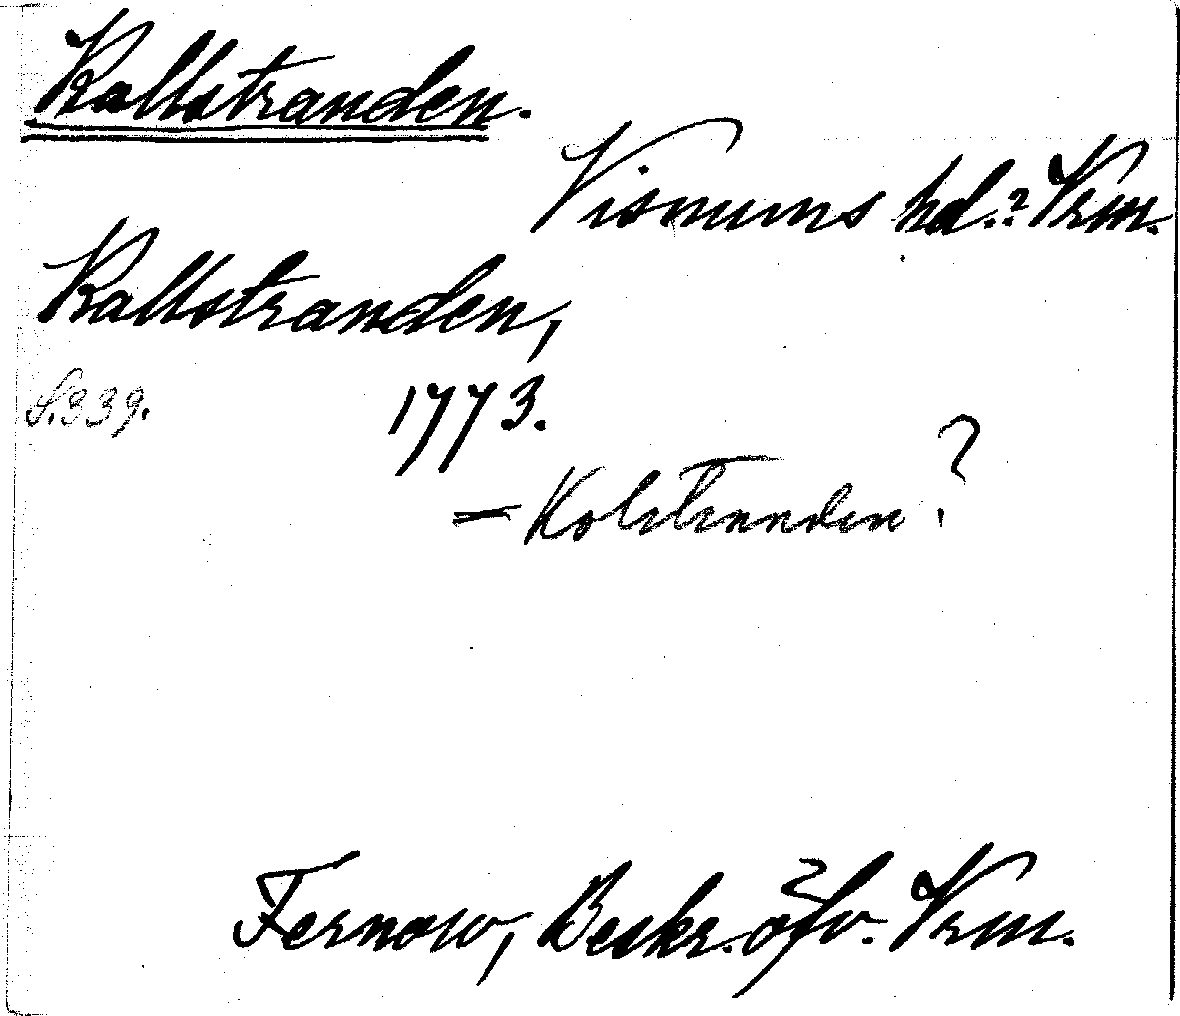 Kallstranden.
Visnums hd.? Vrm.
Kallstranden,
S. 339.
1773.
= Kolstranden?
Fernow, Beskr. öfv. Vrm.